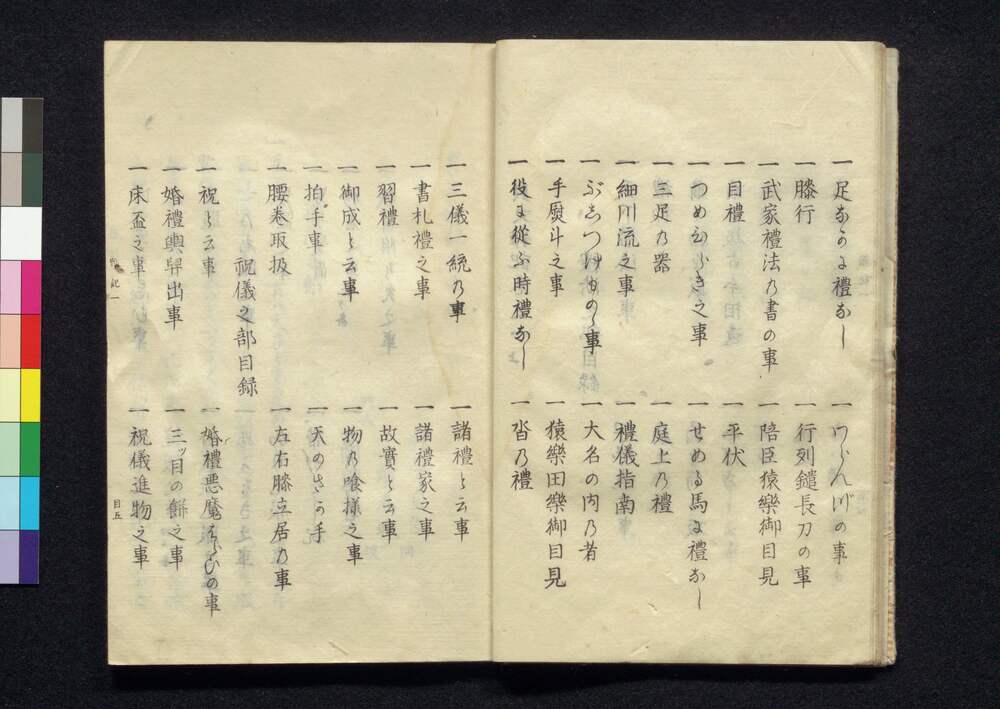 一 足なかに禮なし 一 わらんづの事
一 膝行 一 行列鑓長刀の事
一 武家禮法乃書の事 一 陪臣猿樂御目見
一 目禮 一 平伏
一 つめひらき之事 一 せめる馬に禮なし
一 三足乃器 一 庭上乃禮
一 細川流之事 一 禮儀指南
一 ぶしつけもの〻事 一 大名の内乃者
一 手熨斗之事 一 猿樂田樂御目見
一 役に從ふ時禮なし 一 沓乃禮
一 三儀一統乃事 一 諸禮と云事
一 書札禮之事 一 諸禮家之事
一 習禮 一 故實と云事
一 御成と云事 一 物乃喰樣之事
一 拍手事 一 天のさか手
一 腰巻取扱 一 左右膝立居乃事
祝儀之部目録
一 祝と云事 一 婚禮悪魔はらひの事
一 婚禮輿舁出事 一 三ッ目の餅之事
一 床盃之事 一 祝儀進物之事
記一
目五